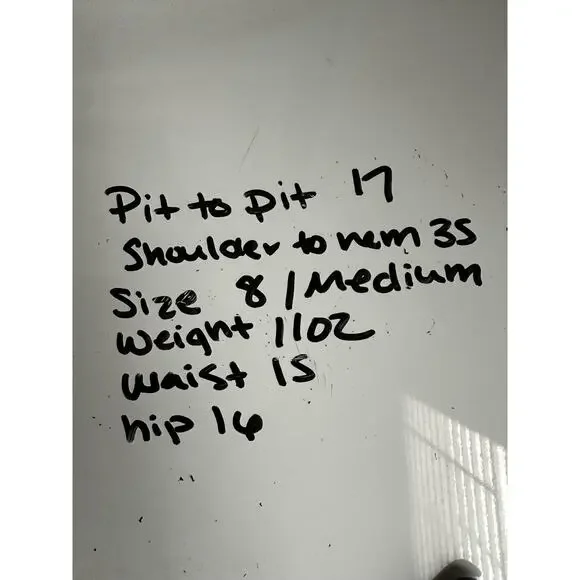 Pit to pit 17
Shoulder to hem 35
Size 8 / Medium
Weight 11oz
Waist 15
hip 16